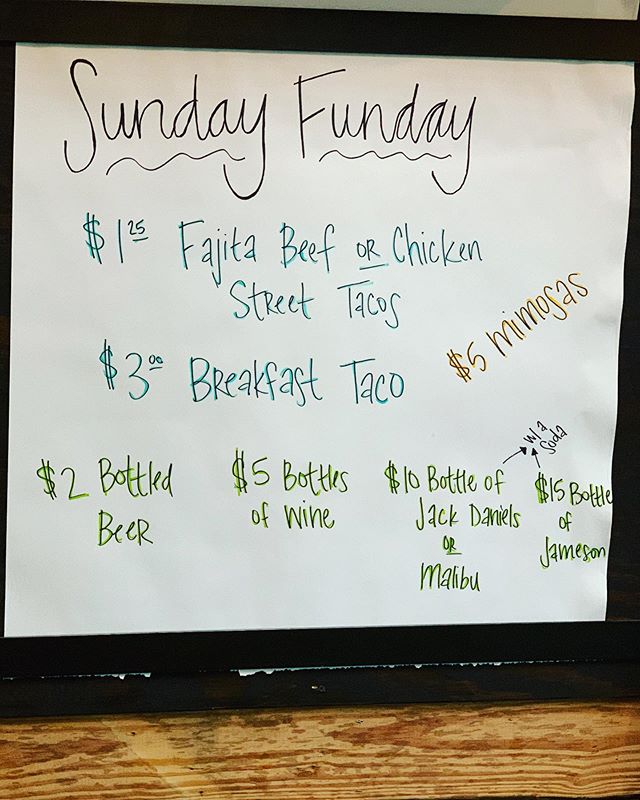 Sunday Funday
$1.25 Fajita Beef or Chicken
Street Tacos
$5 mimosas
$3.00 Breakfast Taco
w/ a
soda
$2 Bottled
Beer
$5 Bottles
of Wine
$10 Bottle of
Jack Daniels
or
Malibu
$15 Bottle
of
Jameson